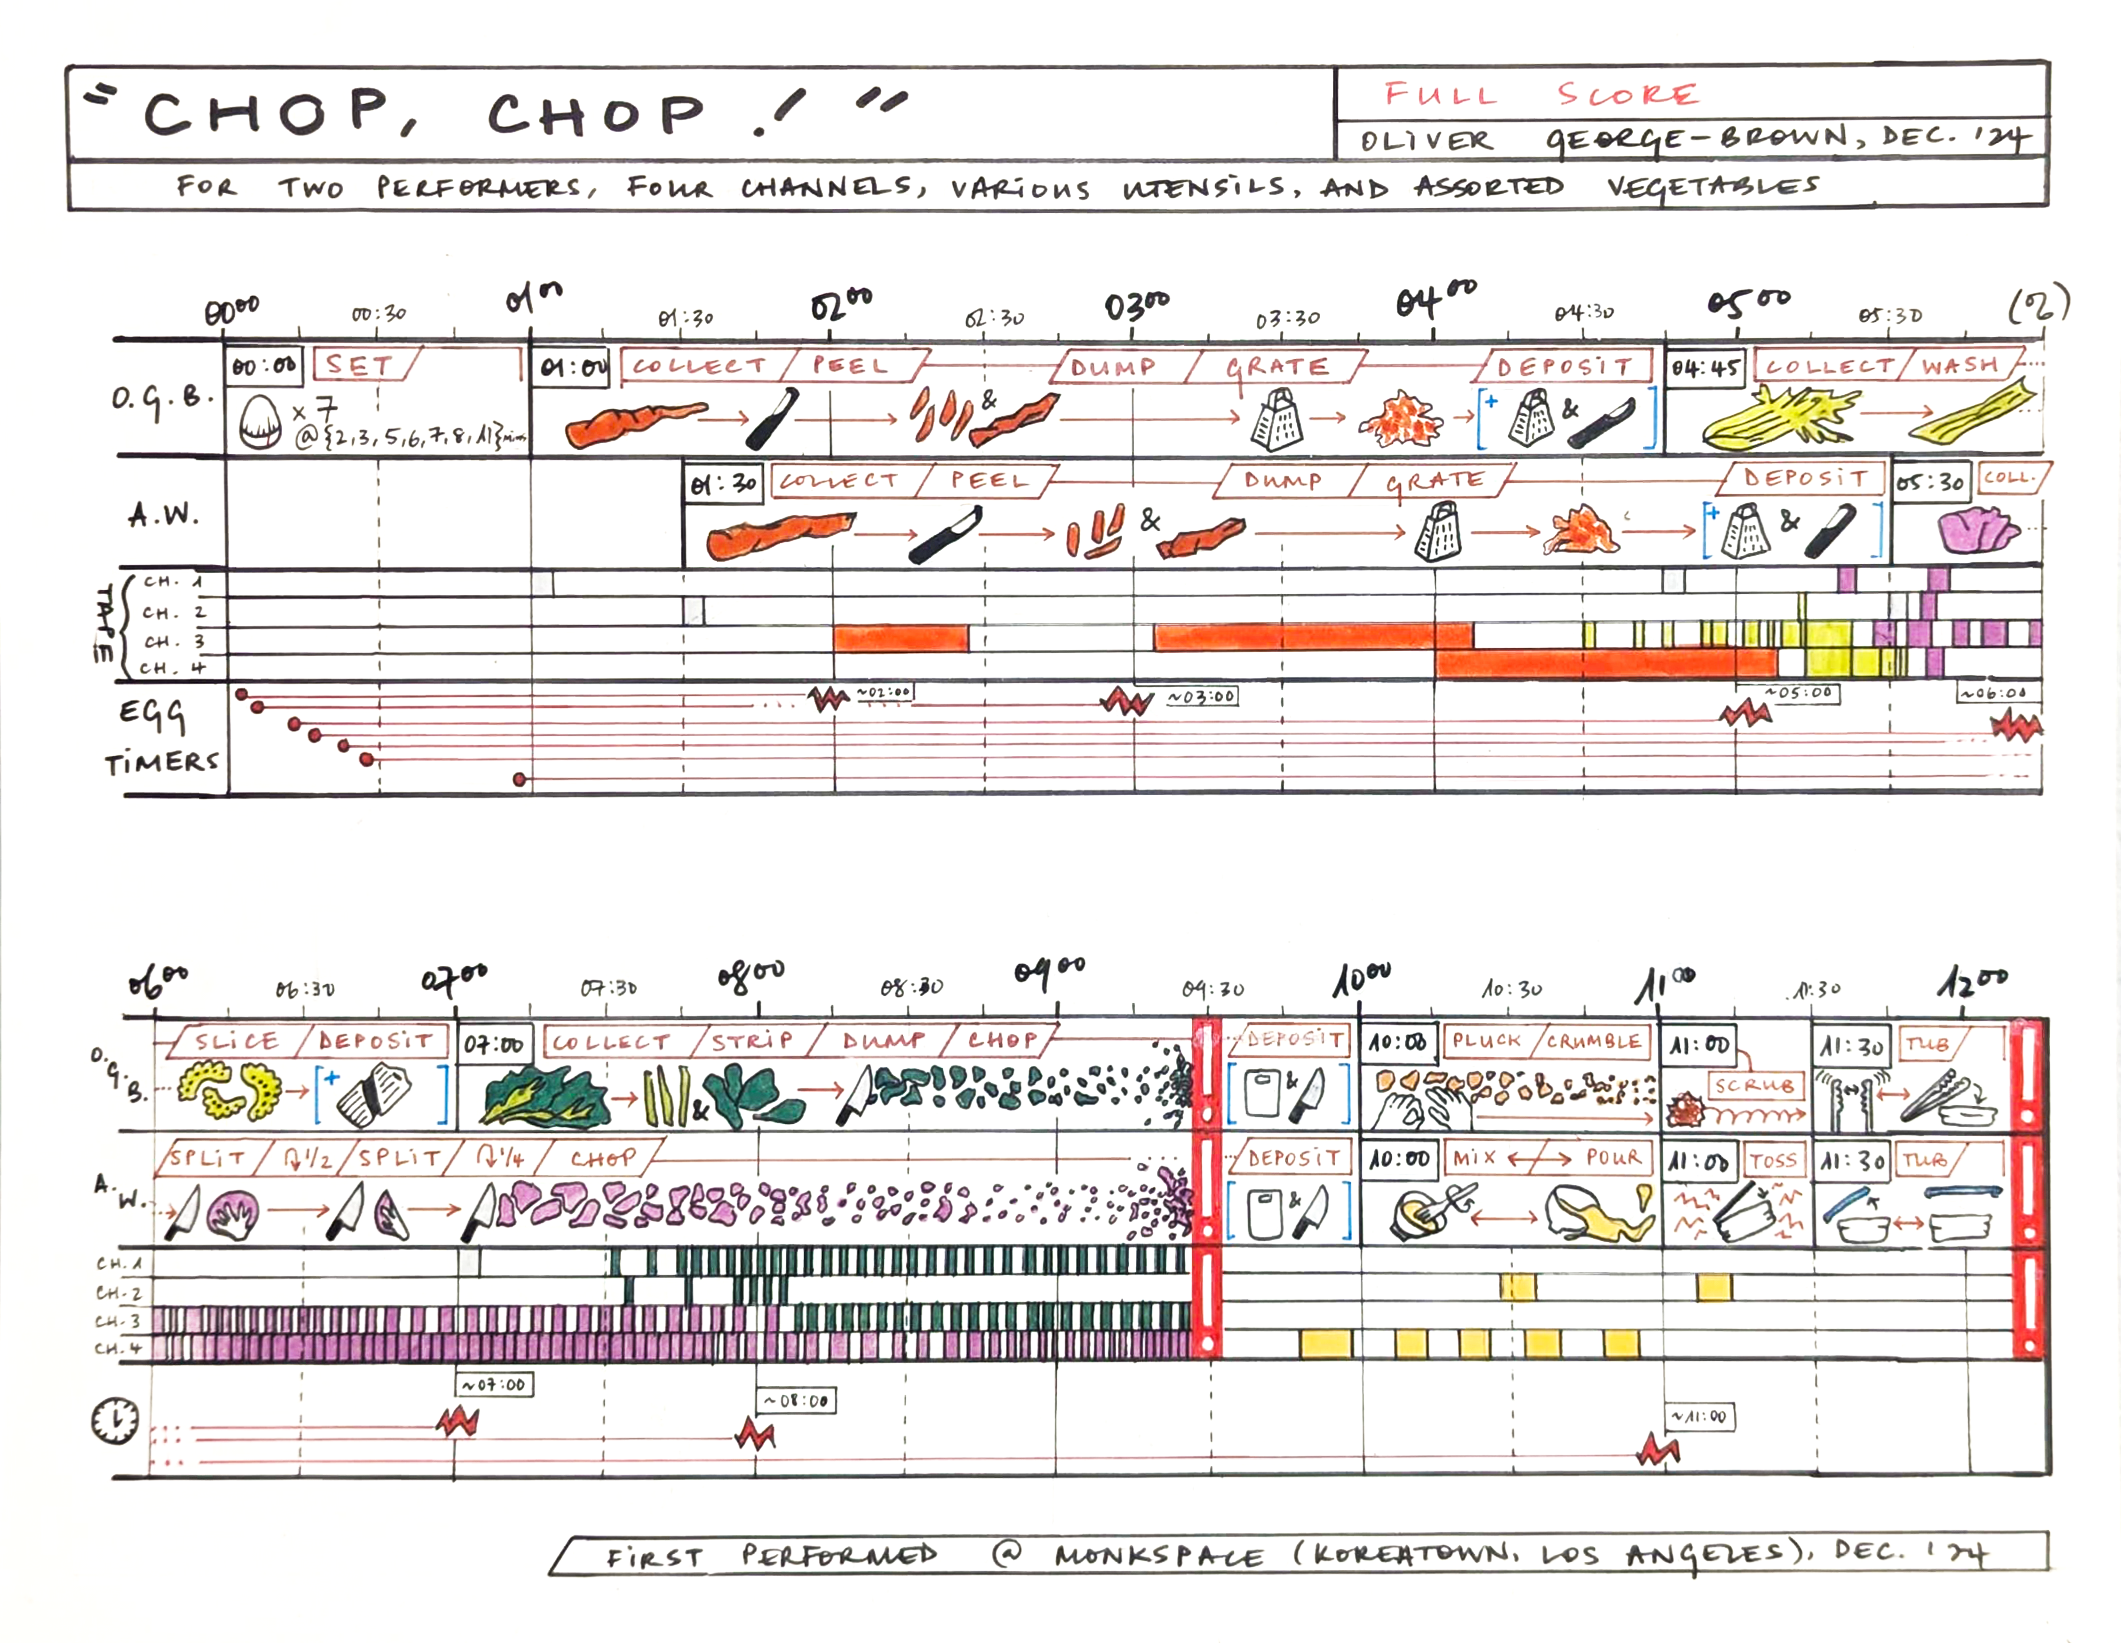 "CHOP, CHOP!"
FULL SCORE
OLIVER GEORGE-BROWN, DEC. '24
FOR TWO PERFORMERS, FOUR CHANNELS, VARIOUS UTENSILS, AND ASSORTED VEGETABLES
00 00 00:30 01 00 01:30 02 00 02:30 03 00 03:30 04 00 04:30 05 00 05:30
O.G.B.
00:00 SET
x 7
@ {2,3,5,6,7,8,11} mins
01:00 COLLECT / PEEL DUMP / GRATE DEPOSIT
&
[+ & ]
04:45 COLLECT / WASH
A.W.
01:30 COLLECT / PEEL DUMP / GRATE DEPOSIT
&
[+ & ]
05:30 COLL.
TAPE
CH. 1
CH. 2
CH. 3
CH. 4
EGG TIMERS
~02:00 ~03:00 ~05:00 ~06:00
06 00 06:30 07 00 07:30 08 00 08:30 09 00 09:30 10 00 10:30 11 00 11:30 12 00
O.G.B.
SLICE / DEPOSIT
[+ ]
07:00 COLLECT / STRIP / DUMP / CHOP
&
DEPOSIT
[ & ]
10:00 PLUCK / CRUMBLE
11:00 SCRUB
11:30 TUB
A.W.
SPLIT / ↷1/2 / SPLIT / ↷1/4 / CHOP
DEPOSIT
[ & ]
10:00 MIX ↔ POUR
11:00 TOSS
11:30 TUB
CH. 1
CH. 2
CH. 3
CH. 4
~07:00 ~08:00 ~11:00
FIRST PERFORMED @ MONKSPACE (KOREATOWN, LOS ANGELES), DEC. '24